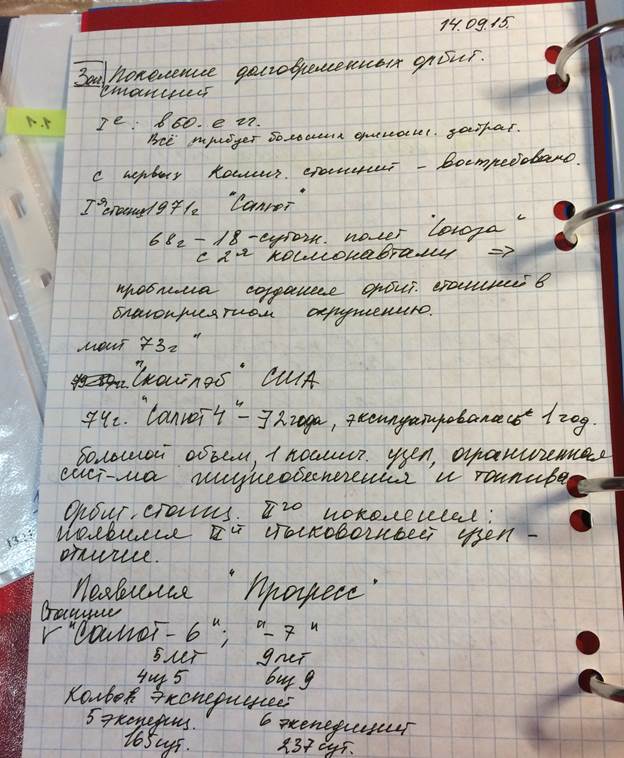 14.09.15.
Зал Поколение долговременных орбит.
станций
I е: в 60.е гг.
Всё требует больших финанс. затрат.
с первых космич. станций - востребовано.
I я станц 1971г "Салют"
68г - 18-суточн. полет "Союза"
с 2я космонавтами =>
проблема создания орбит. станций в
благоприятном окружению.
май 73г
"Скайлэб" США
74г. "Салют 4" - 72года, эксплуатировалась 1 год.
большой объем, 1 космич. узел, ограниченная
сист-ма жизнеобеспечения и топлива
Орбит. станц. II го поколения:
появился II й стыковочный узел -
отличие.
Появился "Прогресс"
Станции
V "Салют - 6"; "- 7"
5 лет 9 лет
4 из 5 6 из 9
Колво экспедиций
5 экспедиц. 6 экспедиций
165 сут. 237 сут.
1.1